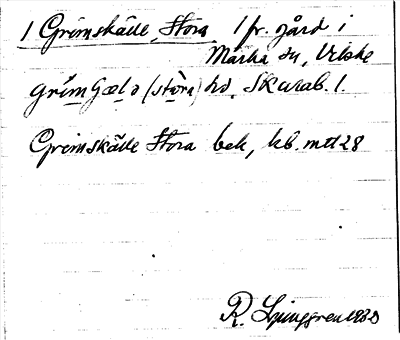 1 Grimskälle, Stora 1 fr. gård i
Marka sn, Vilske
(störa) hd, Skarab. l.
Grimskälle Stora bek, kb. mtl 28
R. Ljunggren 1930